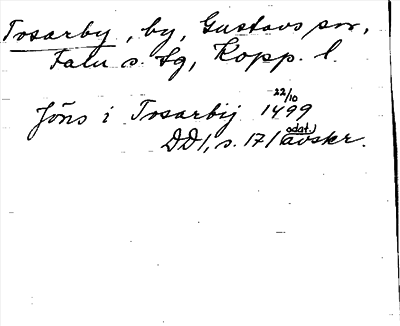 Tosarby, by, Gustavs sn,
Falu s. lg, Kopp. l.
Jöns i Tosarbij 22/10 1499
DD1, s. 171 (odat.) avskr.